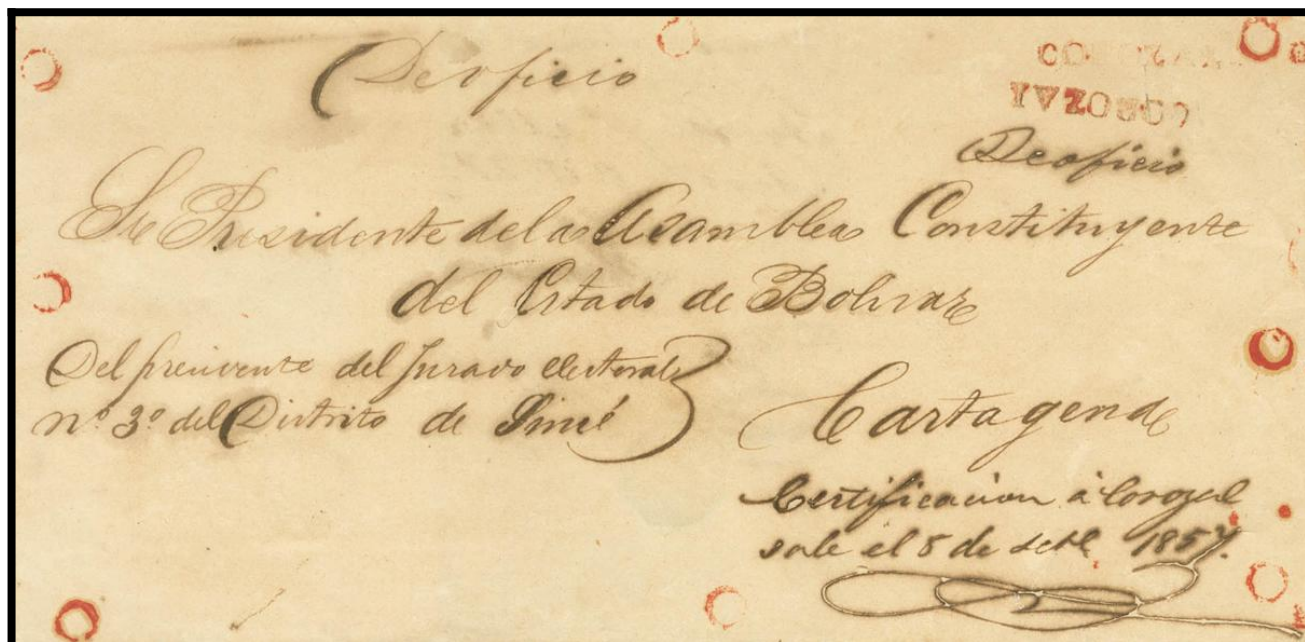 De oficio
COROZAL
De oficio
Sr Presidente de la Asamblea Constituyente
del Estado de Bolivar
Del presidente del Jurado electoral
nº 3º del Distrito de Sincé
Cartagena
Certificacion á Corozal
sale el 8 de setbe 1857.